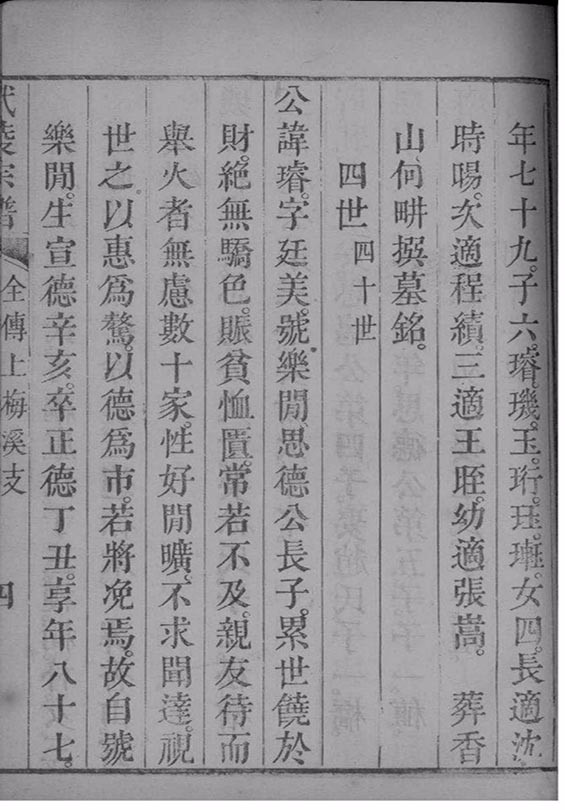 年七十九。子六。璿。璣。玉。珩。珏。璀。女四。長適沈
時暘。次適程績。三適王晊。幼適張嵩。 葬香
山何畊撰墓銘。
四世 四十世
公諱璿。字廷美。號樂閒。思德公長子。累世饒於
財。絕無驕色。賑貧恤匱。常若不及。親友待而
舉火者無慮數十家。性好閒曠。不求聞達。視
世之以惠為鶩。以德為市。若將凂焉。故自號
樂閒。生宣德辛亥。卒正德丁丑。享年八十七。
宗譜 全傳上梅溪支 四